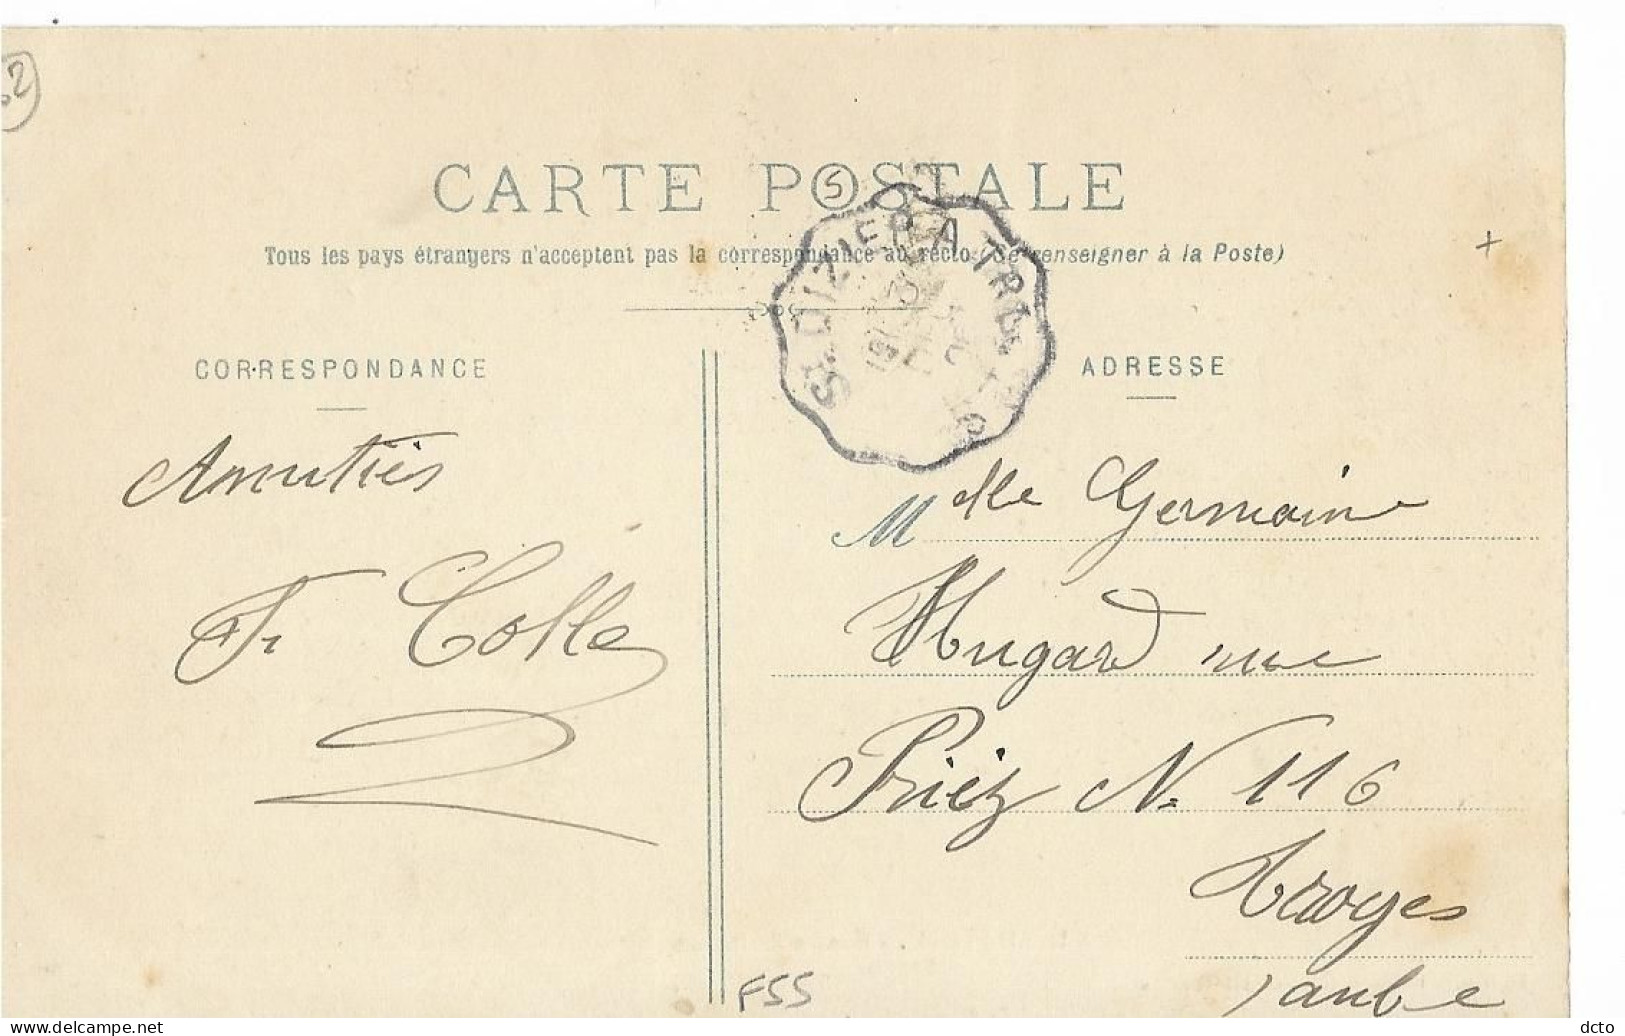 52
CARTE POSTALE
5
Tous les pays étrangers n'acceptent pas la correspondance au recto (Se renseigner à la Poste)
St DIZIER A TR
CORRESPONDANCE
ADRESSE
Amitiés
F. Colle
Melle Germaine
Hugard rue
Priez N. 116
Troyes
aube
F55
dcto